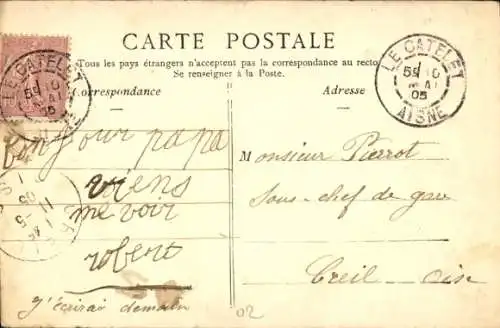 CARTE POSTALE
Tous les pays étrangers n'acceptent pas la correspondance au recto
Se renseigner à la Poste.
Correspondance
Adresse
LE CATELET
AISNE
LE CATELET
05
AISNE
bonjour papa
viens
me voir
robert
J'écrirai demain
Monsieur Pierrot
sous-chef de gare
Creil - oise
02